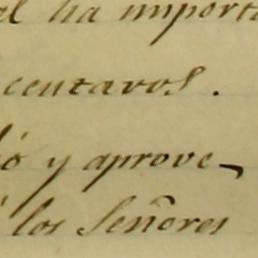 al ha import
centavos.
ió y aprove-
á los Señores